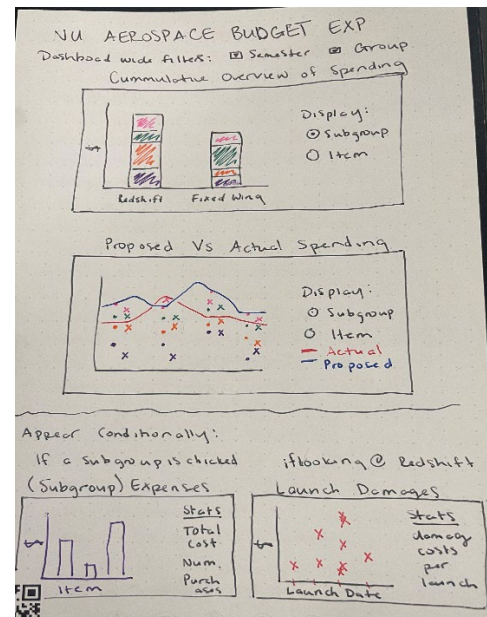 NU AEROSPACE BUDGET EXP
Dashboard wide filters: Semester Group
Cummulative Overview of Spending
Display:
Subgroup
Item
$
Redshift Fixed Wing
Proposed Vs Actual Spending
Display:
Subgroup
Item
Actual
Proposed
Appear Conditionally:
If a subgroup is clicked
(Subgroup) Expenses
$
Item
Stats
Total
Cost
Num.
Purch
ases
if looking @ Redshift
Launch Damages
$
Launch Date
Stats
damage
costs
per
launch